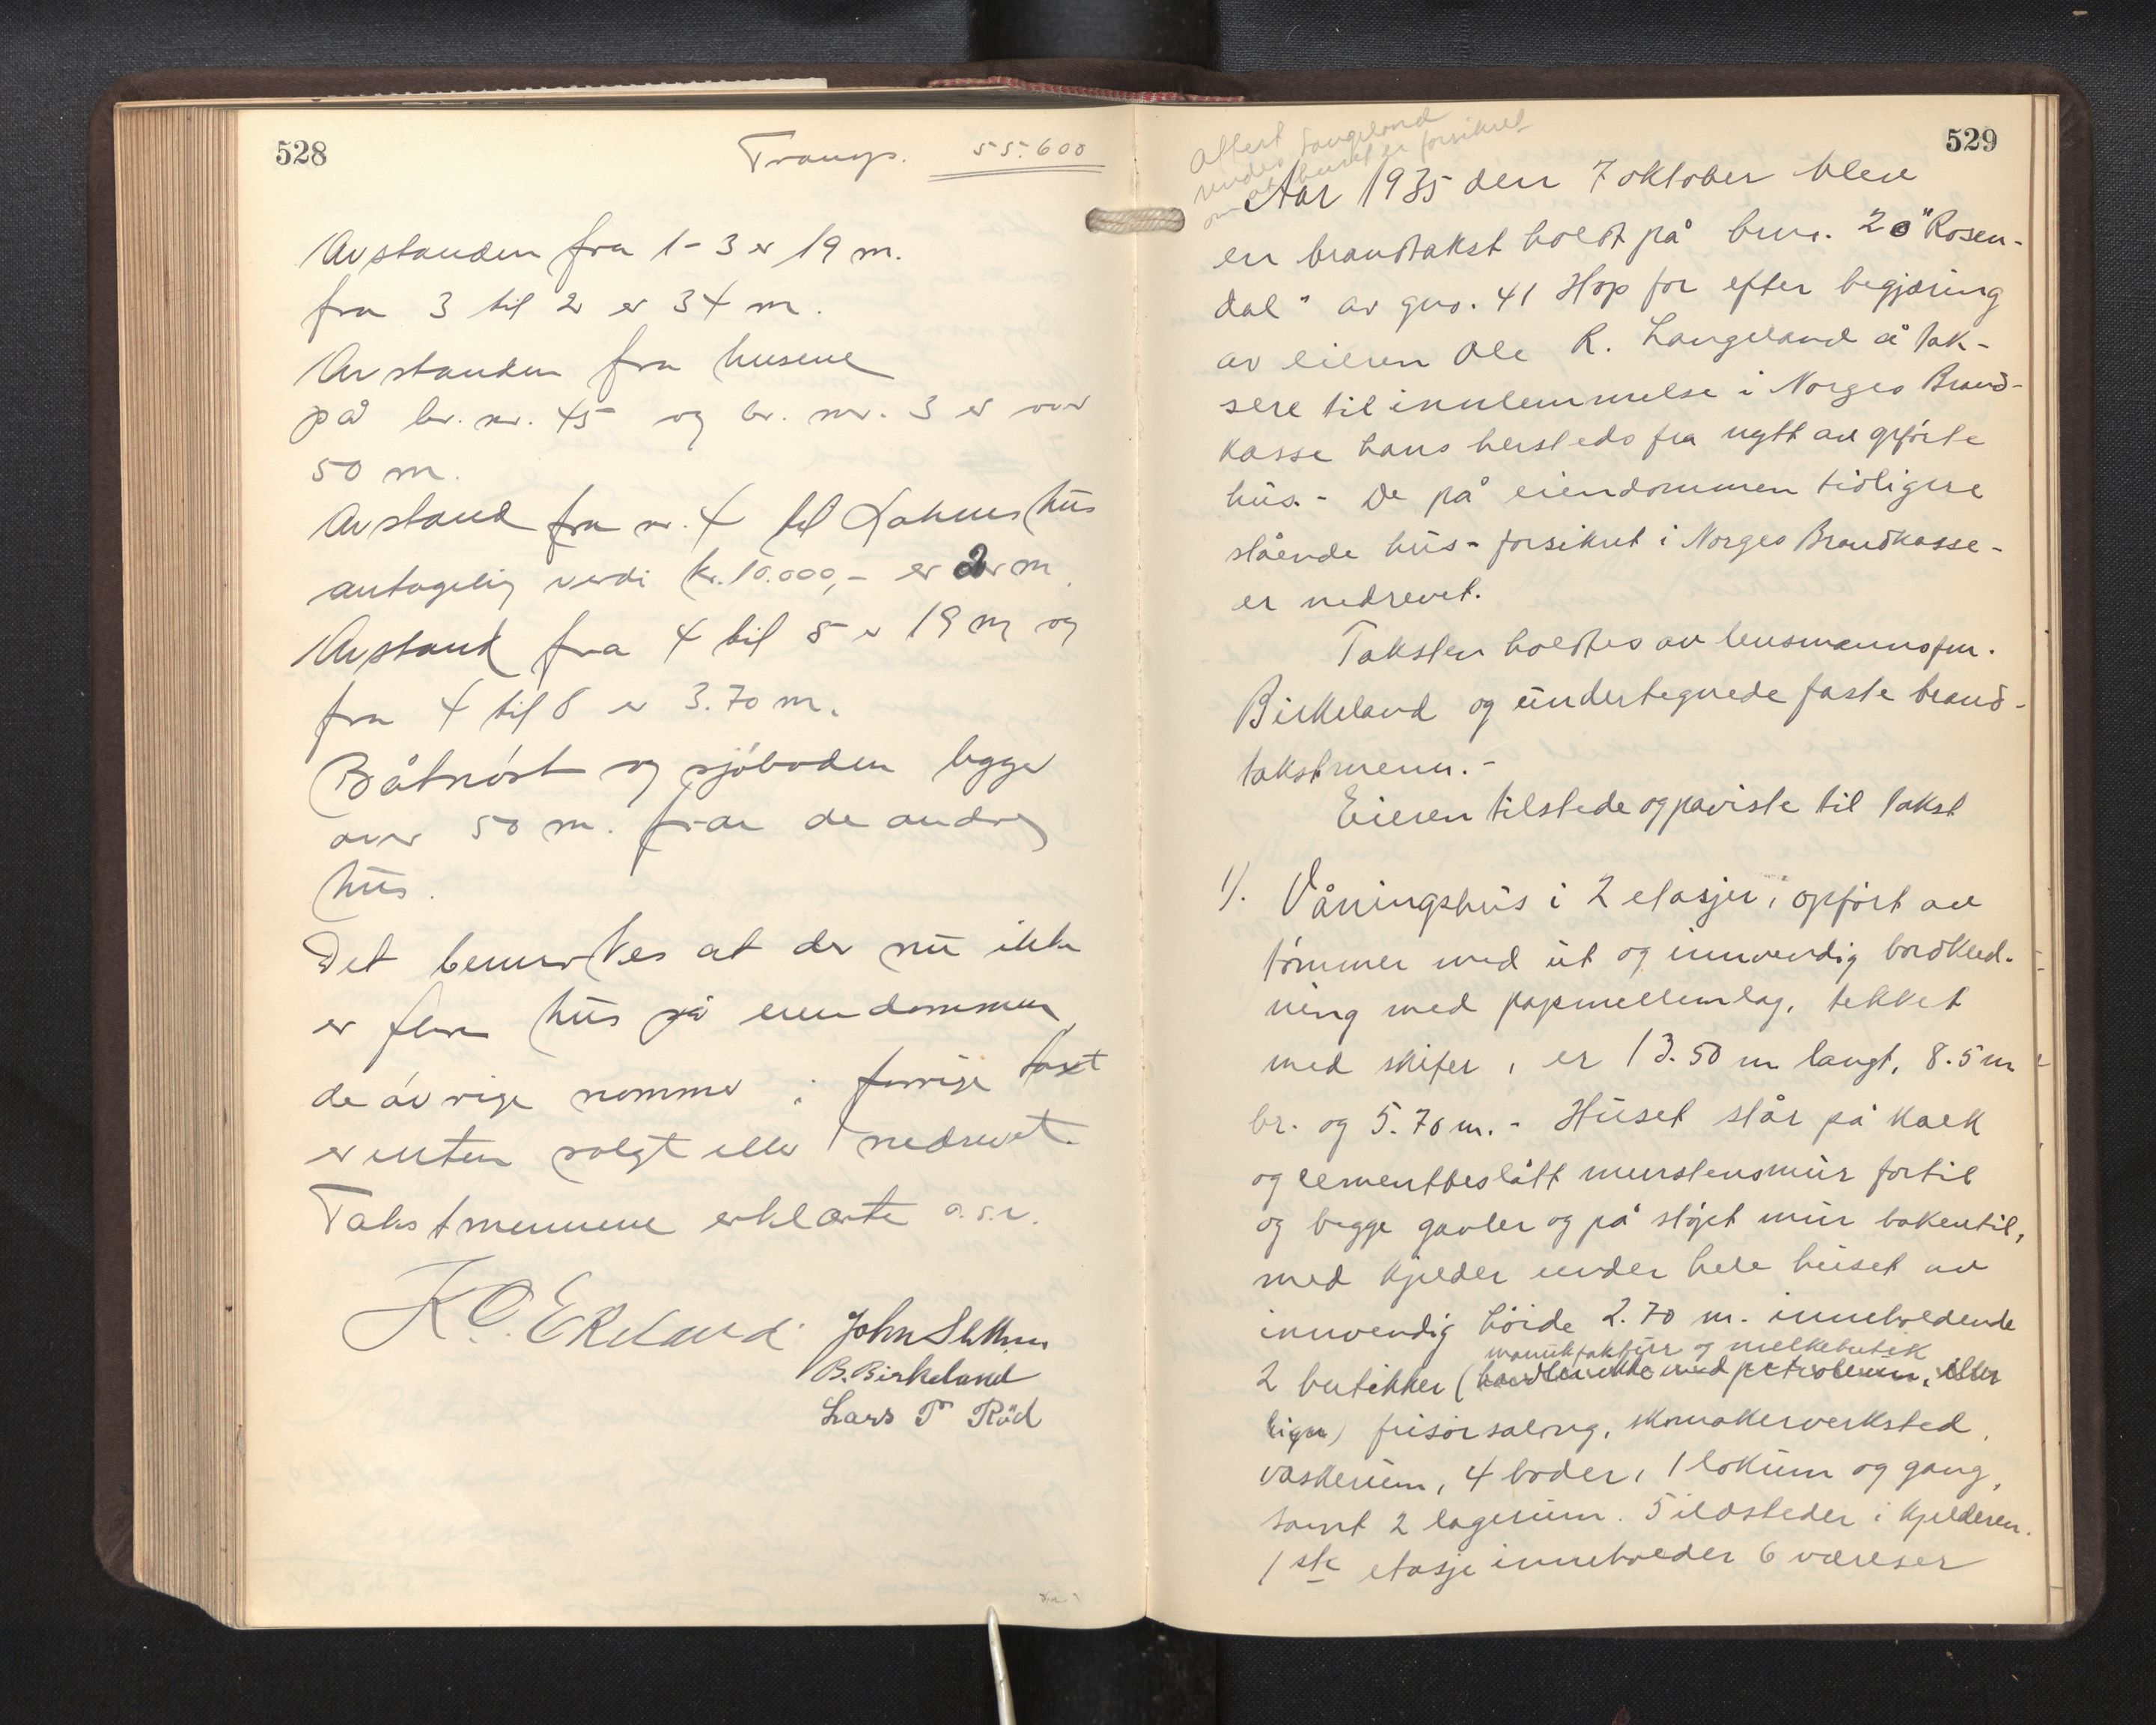 528
Transp. 55.600
Avstanden fra 1-3 er 19 m.
fra 3 til 2 er 34 m.
Avstanden fra husene
på br. nr. 45 og br. nr. 3 er over
50 m.
Avstand fra nr. 4 til hus
antagelig verdi kr. 10.000,- er m.
Avstand fra 4 til 5 er 19 m og
fra 4 til 8 er 3.70 m.
Båtnöst og sjöboden ligger
over 50 m. fra de andre
hus.
Det bemerkes at der nu ikke
er flere hus på eiendommen
de övrige nommer i forrige taxt
er enten solgt eller nedrevet.
Takstmennene erklærte a.s.v.
K.O. Ekeland John Sletten
B. Birkeland
Lars T. Röd
529
Attest
sendes Langeland
om at huset er forsikret
Aar 1935 den 7 oktober blev
en brandtakst holdt på brnr. 20 "Rosen-
dal" av gno. 41 Hop for efter begjæring
av eieren Ole R. Langeland å tak-
sere til innlemmelse i Norges Brand-
kasse hans hersteds fra nytt av opförte
hus. - De på eiendommen tidligere
stående hus - forsikret i Norges Brandkasse -
er nedrevet.
Taksten holdtes av lensmannsfm.
Birkeland og undertegnede faste brand-
takstmenn. -
Eieren tilstede og påviste til takst
1). Våningshus i 2 etasjer, opfört av
tömmer med ut og innvendig bordkled-
ning med papmellemlag, tekket
med skifer, er 13.50 m langt, 8.5 m
br. og 5.70 m. - Huset står på kalk
og cementbeslått murstensmur fortil
og begge gavler og på stöpt mur bakentil,
med kjelder under hele huset av
innvendig höide 2.70 m. inneholdende
manufaktur og melkebutik
2 butikker (handler ikke med petroleum, eller
lign) frisörsalong, skomakerverksted,
vaskerum, 4 boder, 1 lokum og gang,
samt 2 lagerum. 5 ildsteder i kjelderen.
1ste etasje inneholder 6 værelser